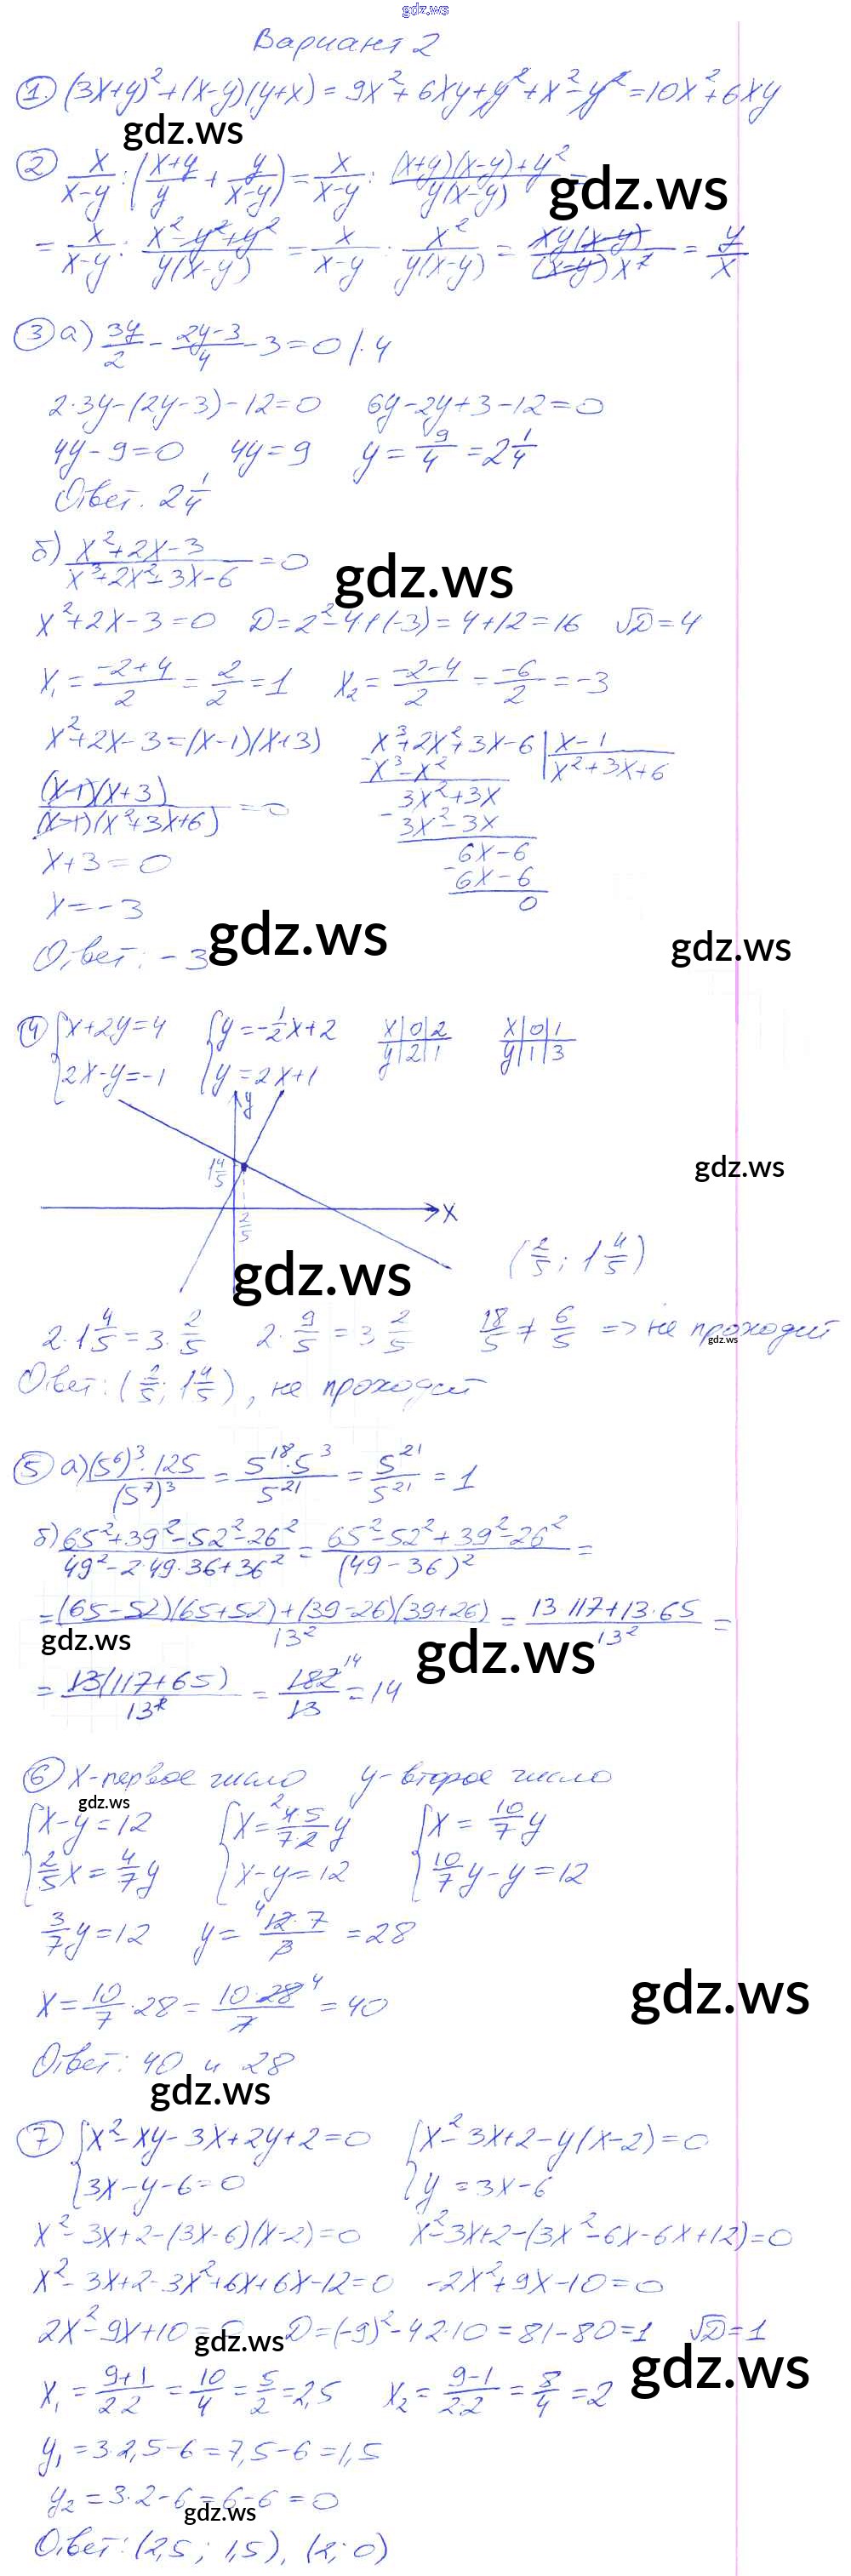 gdz.ws
Вариант 2
① (3x+y)²+(x-y)(y+x)=9x²+6xy+y²+x²-y²=10x²+6xy
gdz.ws
② x/(x-y) : ((x+y)/y + y/(x-y)) = x/(x-y) : ((x+y)(x-y)+y²)/(y(x-y)) =
gdz.ws
= x/(x-y) : (x²-y²+y²)/(y(x-y)) = x/(x-y) : x²/(y(x-y)) = xy(x-y)/((x-y)x²) = y/x
③ а) 3y/2 - (2y-3)/4 - 3 = 0 |·4
2·3y-(2y-3)-12=0 6y-2y+3-12=0
4y-9=0 4y=9 y=9/4=2 1/4
Ответ. 2 1/4
б) (x²+2x-3)/(x³+2x²+3x-6) = 0
gdz.ws
x²+2x-3=0 D=2²-4·1·(-3)=4+12=16 √D=4
x₁=(-2+4)/2=2/2=1 x₂=(-2-4)/2=-6/2=-3
x²+2x-3=(x-1)(x+3) x³+2x²+3x-6 | x-1
x³-x² x²+3x+6
(x-1)(x+3)/((x-1)(x²+3x+6)) = 0 3x²+3x
3x²-3x
x+3=0 6x-6
6x-6
x=-3 0
gdz.ws
gdz.ws
Ответ: -3
④ {x+2y=4 {y=-1/2x+2 x|0|2 x|0|1
2x-y=-1 y=2x+1 y|2|1 y|1|3
y
1 4/5
gdz.ws
x
2/5
gdz.ws
(2/5; 1 4/5)
2·1 4/5=3·2/5 2·9/5=3·2/5 18/5≠6/5 => не проходит
gdz.ws
Ответ: (2/5; 1 4/5), не проходит
⑤ а) (5⁶)³·125/(5⁷)³ = 5¹⁸·5³/5²¹ = 5²¹/5²¹ = 1
б) (65²+39²-52²-26²)/(49²-2·49·36+36²) = (65²-52²+39²-26²)/(49-36)² =
= ((65-52)(65+52)+(39-26)(39+26))/13² = (13·117+13·65)/13² =
gdz.ws
gdz.ws
= 13(117+65)/13² = 182/13 = 14
14
⑥ x-первое число y-второе число
gdz.ws
{x-y=12 {x=4·5/7·2 y {x=10/7y
2/5x=4/7y x-y=12 10/7y-y=12
3/7y=12 y=12·7/3=28
gdz.ws
x=10/7·28=10·28/7=40
Ответ: 40 и 28
gdz.ws
⑦ {x²-xy-3x+2y+2=0 {x²-3x+2-y(x-2)=0
3x-y-6=0 y=3x-6
x²-3x+2-(3x-6)(x-2)=0 x²-3x+2-(3x²-6x-6x+12)=0
x²-3x+2-3x²+6x+6x-12=0 -2x²+9x-10=0
2x²-9x+10=0 D=(-9)²-4·2·10=81-80=1 √D=1
gdz.ws
gdz.ws
x₁=(9+1)/2·2=10/4=5/2=2,5 x₂=(9-1)/2·2=8/4=2
y₁=3·2,5-6=7,5-6=1,5
y₂=3·2-6=6-6=0
gdz.ws
Ответ: (2,5; 1,5), (2; 0)